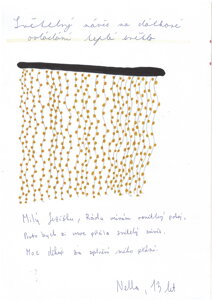 Světelný závěs na dálkové
ovládání teplé světlo
Milý Ježíšku, Ráda mívám pokoj.
Proto bych si moc přála světelný závěs.
Moc děkuji za splnění mého přání
Nella, 13 let